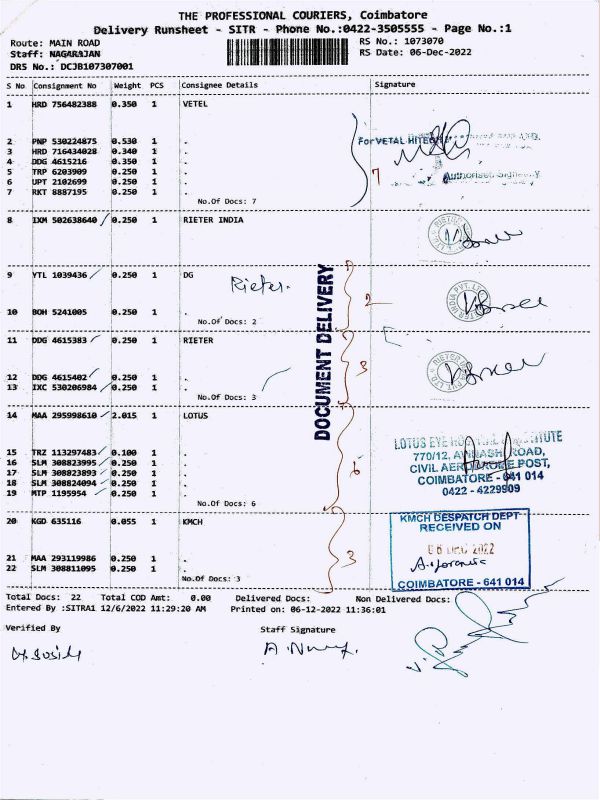 THE PROFESSIONAL COURIERS, Coimbatore
Delivery Runsheet - SITR - Phone No.:0422-3505555 - Page No.:1
Route: MAIN ROAD RS No.: 1073070
Staff: NAGARAJAN RS Date: 06-Dec-2022
DRS No.: DCJB107307001
S No Consignment No Weight PCS Consignee Details Signature
1 HRD 756482388 0.350 1 VETEL
2 PNP 530224875 0.530 1 .
For VETAL HITECH
3 HRD 716434028 0.340 1 .
4 DDG 4615216 0.350 1 .
5 TRP 6203909 0.250 1 .
Authorised Signatory
6 UPT 2102699 0.250 1 .
7 RKT 8887195 0.250 1 .
7
No.Of Docs: 7
8 IXM 502638640 0.250 1 RIETER INDIA
9 YTL 1039436 0.250 1 DG
Rieter.
2
10 BOH 5241005 0.250 1 .
No.Of Docs: 2
DOCUMENT DELIVERY
11 DDG 4615383 0.250 1 RIETER
3
12 DDG 4615402 0.250 1 .
13 IXC 530206984 0.250 1 .
No.Of Docs: 3
14 MAA 295998610 2.015 1 LOTUS
LOTUS EYE HOSPITAL INSTITUTE
15 TRZ 113297483 0.100 1 .
770/12, AVINASHI ROAD,
16 SLM 308823995 0.250 1 .
CIVIL AERODROME POST,
17 SLM 308823893 0.250 1 .
COIMBATORE - 641 014
18 SLM 308824094 0.250 1 .
0422 - 4229909
19 MTP 1195954 0.250 1 .
6
No.Of Docs: 6
20 KGD 635116 0.055 1 KMCH
KMCH DESPATCH DEPT
RECEIVED ON
06 DEC 2022
21 MAA 293119986 0.250 1 .
22 SLM 308811095 0.250 1 .
3
No.Of Docs: 3
COIMBATORE - 641 014
Total Docs: 22 Total COD Amt: 0.00 Delivered Docs: Non Delivered Docs:
Entered By :SITRA1 12/6/2022 11:29:20 AM Printed on: 06-12-2022 11:36:01
Verified By Staff Signature